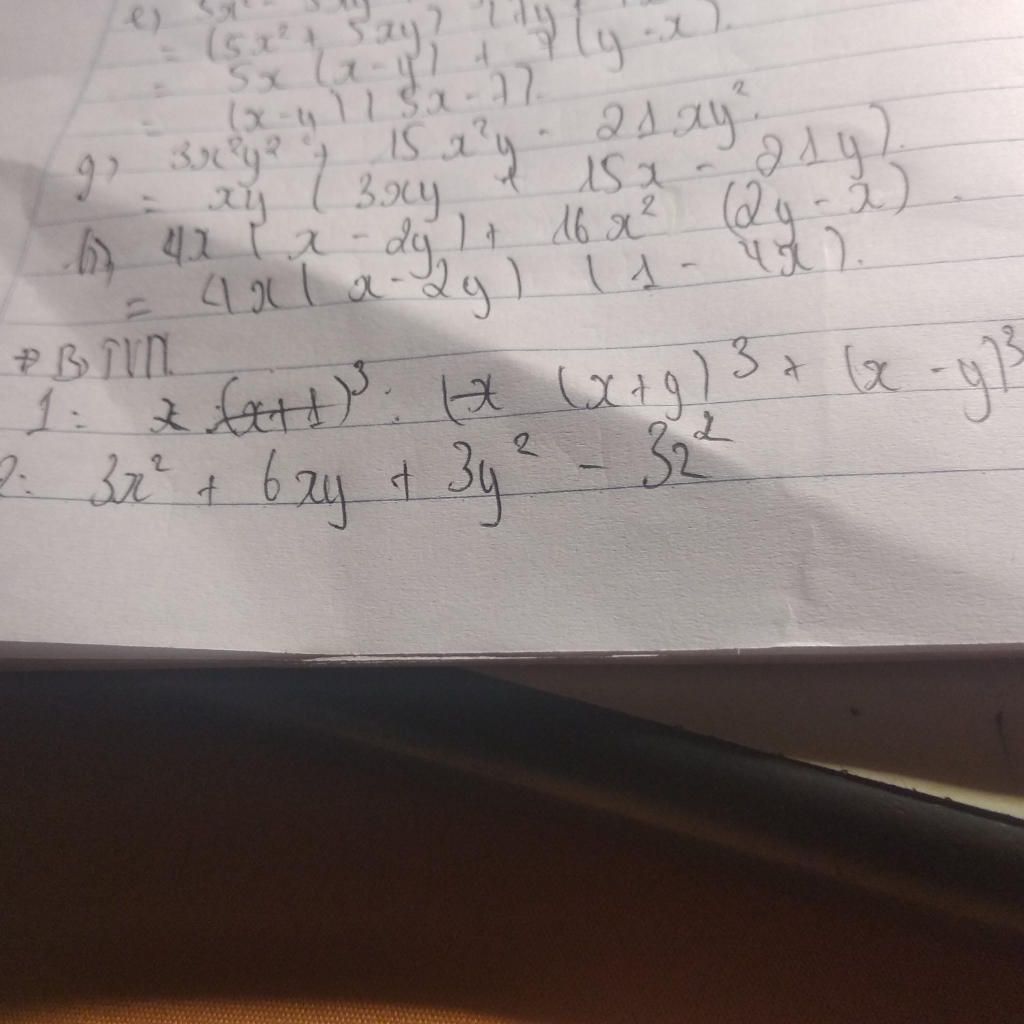 e)
= (5x² + 5xy) + 7 (y - x).
= 5x (x - y)
= (x - y) (5x - 7).
g) 3x²y² + 15x²y - 21xy².
= xy (3xy + 15x - 21y).
h) 4x (x - 2y) + 16x² (2y - x).
= 4x (x - 2y) (1 - 4x).
→ BTVN
1: (x + y)³ + (x - y)³
2: 3x² + 6xy + 3y² - 3z²